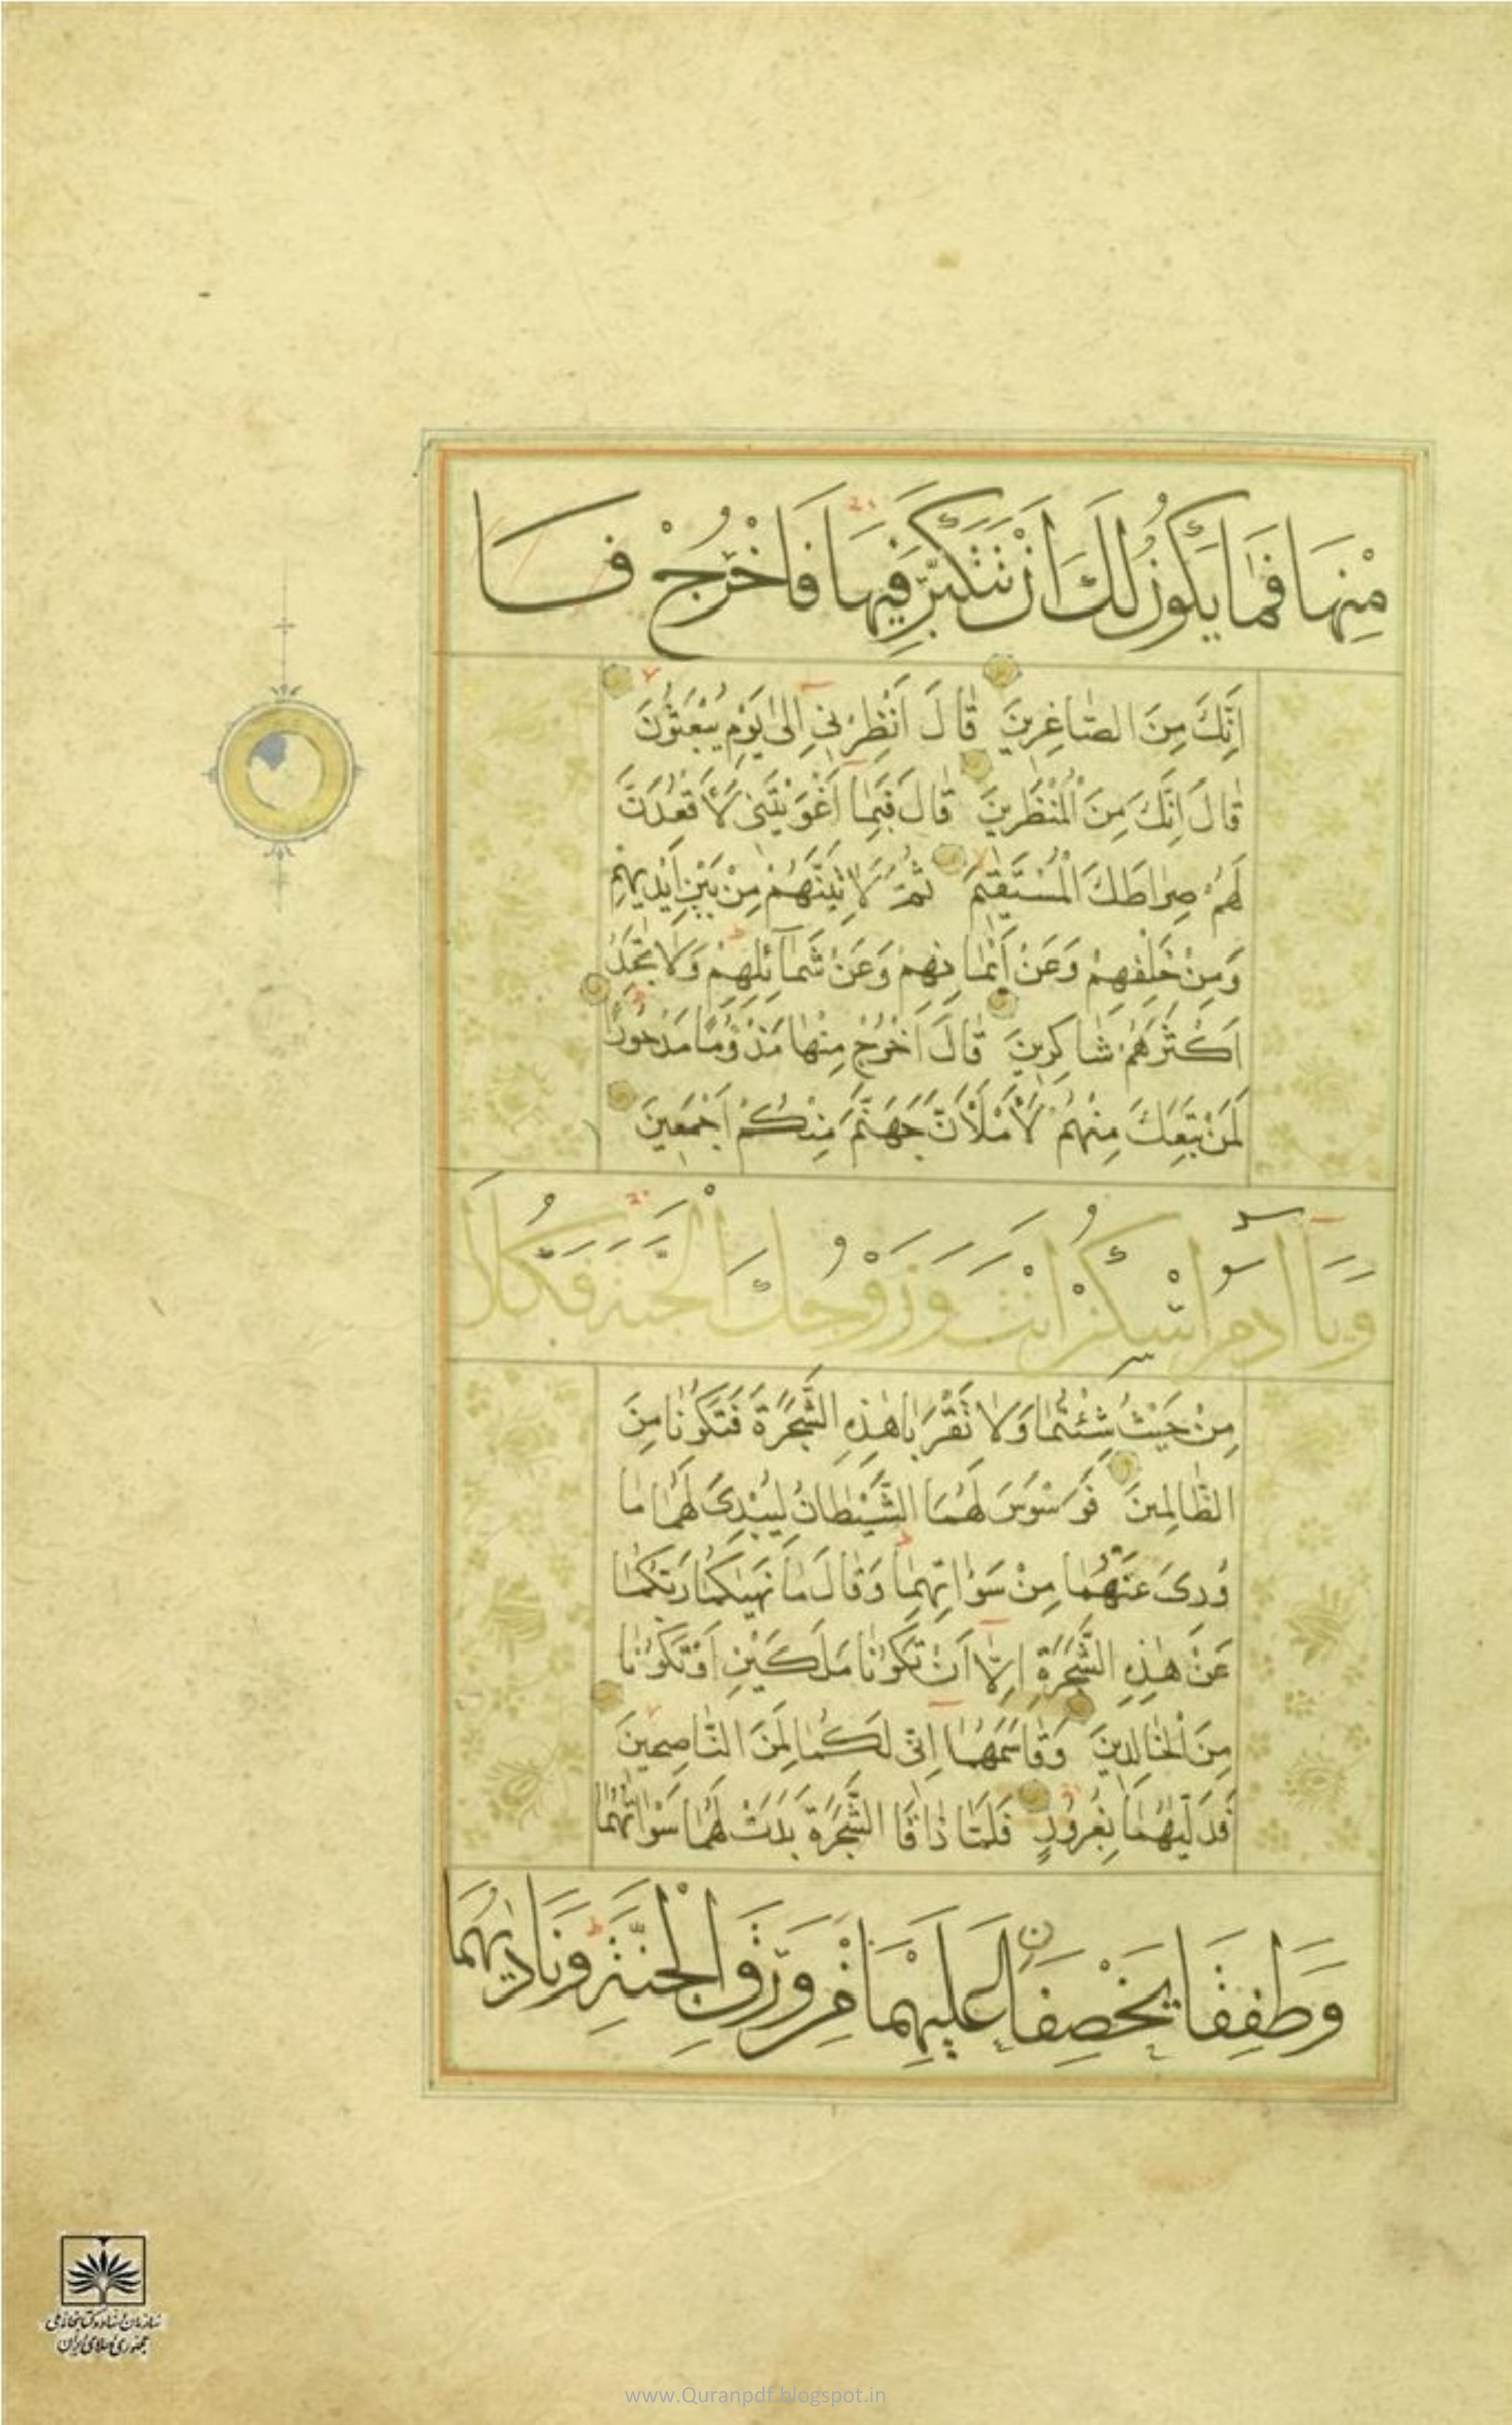 مِنْهَا فَمَا يَكُونُ لَكَ اَنْ تَتَكَبَّرَ فِيهَا فَاخْرُجْ فا
اِنَّكَ مِنَ الصَّاغِرِينَ قَالَ اَنْظِرْنِي اِلٰى يَوْمِ يُبْعَثُونَ
قَالَ اِنَّكَ مِنَ الْمُنْظَرِينَ قَالَ فَبِمَا اَغْوَيْتَنِى لَاَقْعُدَنَّ
لَهُمْ صِرَاطَكَ الْمُسْتَقِيمَ ثُمَّ لَاٰتِيَنَّهُمْ مِنْ بَيْنِ اَيْدِيهِمْ
وَمِنْ خَلْفِهِمْ وَعَنْ اَيْمَانِهِمْ وَعَنْ شَمَآئِلِهِمْ وَلَا تَجِدُ
اَكْثَرَهُمْ شَاكِرِينَ قَالَ اخْرُجْ مِنْهَا مَذْؤُمًا مَدْحُورًا
لَمَنْ تَبِعَكَ مِنْهُمْ لَاَمْلَاَنَّ جَهَنَّمَ مِنْكُمْ اَجْمَعِينَ
وَيَاآدَمُ اسْكُنْ اَنْتَ وَزَوْجُكَ الْجَنَّةَ فَكُلَا
مِنْ حَيْثُ شِئْتُمَا وَلَا تَقْرَبَا هٰذِهِ الشَّجَرَةَ فَتَكُونَا مِنَ
الظَّالِمِينَ فَوَسْوَسَ لَهُمَا الشَّيْطَانُ لِيُبْدِىَ لَهُمَا مَا
وُرِىَ عَنْهُمَا مِنْ سَوْاٰتِهِمَا وَقَالَ مَا نَهٰيكُمَا رَبُّكُمَا
عَنْ هٰذِهِ الشَّجَرَةِ اِلَّا اَنْ تَكُونَا مَلَكَيْنِ اَوْ تَكُونَا
مِنَ الْخَالِدِينَ وَقَاسَمَهُمَا اِنِّى لَكُمَا لَمِنَ النَّاصِحِينَ
فَدَلّٰيهُمَا بِغُرُورٍ فَلَمَّا ذَاقَا الشَّجَرَةَ بَدَتْ لَهُمَا سَوْاٰتُهُمَا
وَطَفِقَا يَخْصِفَانِ عَلَيْهِمَا مِنْ وَرَقِ الْجَنَّةِ وَنَادٰيهُمَا
سازمان اسناد و کتابخانه ملی
جمهوری اسلامی ایران
www.Quranpdf.blogspot.in